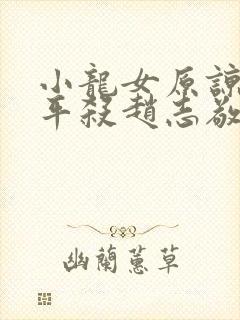 小龍女原諒
平殺趙志敬
幽蘭蕙草